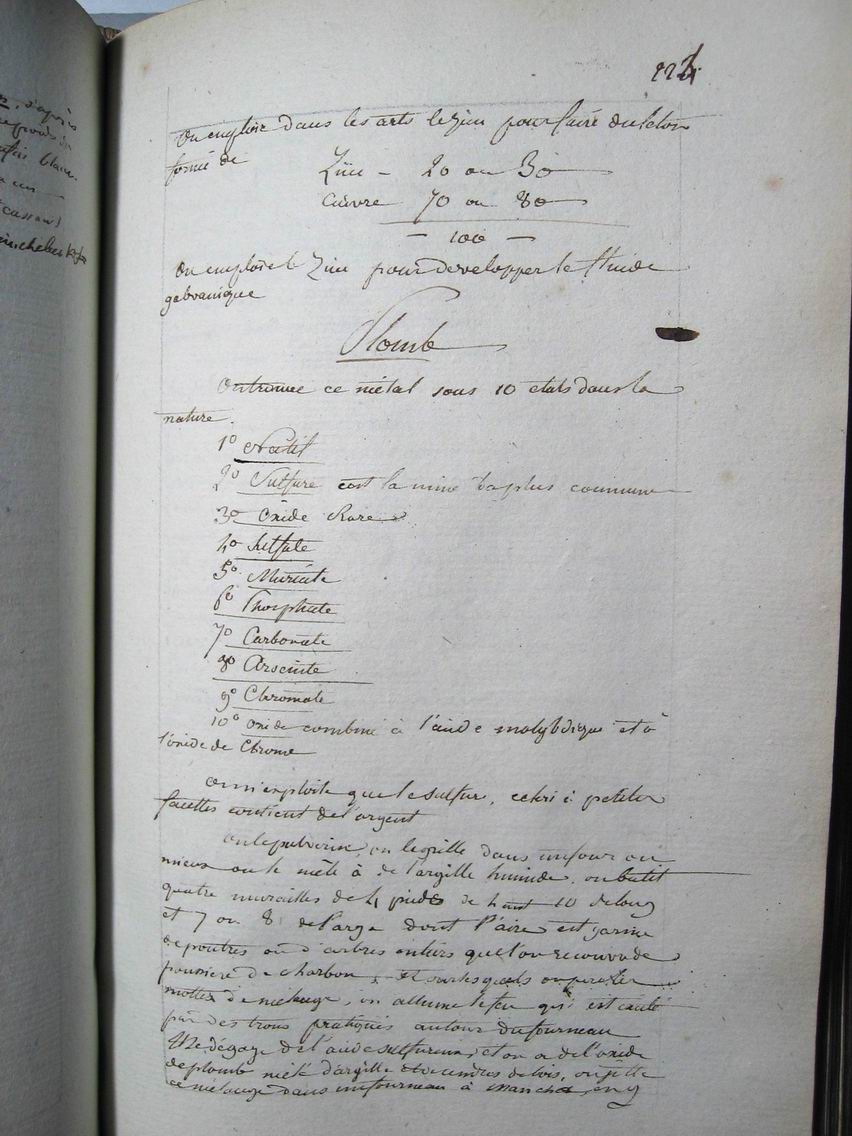 n, d'après
blanc.
cassant
224
On emploie dans les arts le zinc pour faire du leton
formé de
Zinc — 20 ou 30
Cuivre 70 ou 80
— 100 —
On emploie le Zinc pour developper le fluide
galvanique
Plomb
On trouve ce métal sous 10 etats dans la
nature.
1° Natif
2° Sulfure c'est la mine la plus commune
3° Oxide Rare
4° Sulfate
5° Muriate
6° Phosphate
7° Carbonate
8° Arsenite
9° Chromate
10° Oxide combiné à l'acide molybdique et à
l'oxide de Chrome
on n'exploite que le sulfure, celui à petites
facettes contient de l'argent
on le pulverise, on le grille dans un four ou
mieux on le mêle à de l'argille humide. on batit
quatre murailles de 4 pieds de haut 10 de long
et 7 ou 8 de large dont l'aire est garnie
de poutres ou d'arbres entiers que l'on recouvre de
poussiere de charbon, et sur lesquels on
mottes de melange, on allume le feu qui est excité
par des trous pratiqués autour du fourneau
Il se dégage de l'acide sulfureux, et on a de l'oxide
de plomb mêlé d'argille et de cendres de bois, on jette
ce mélange dans un fourneau à manche, en y